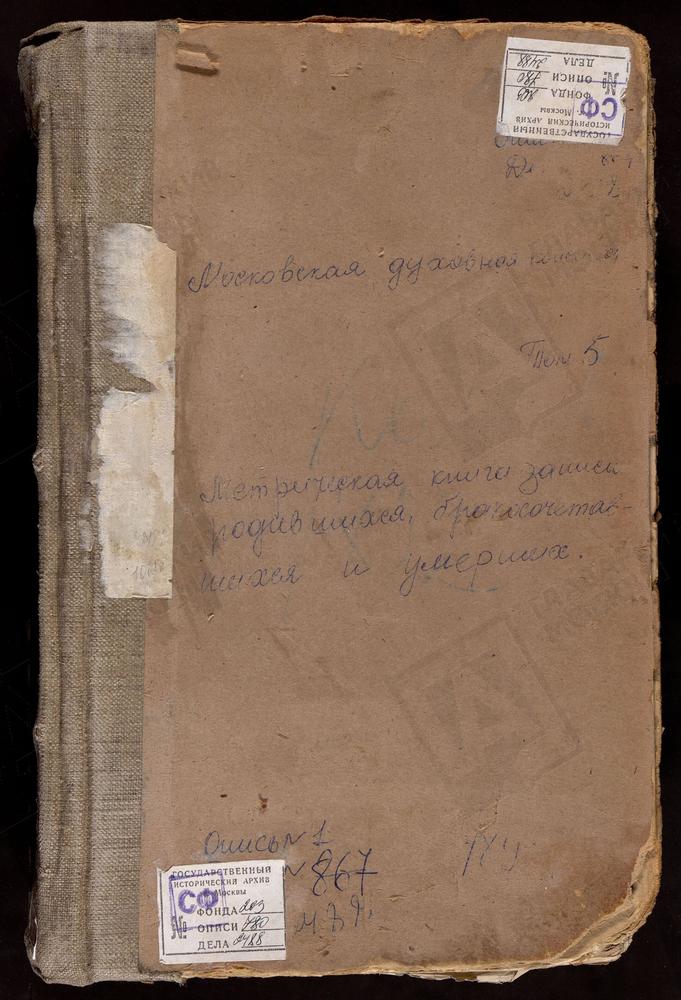 ГОСУДАРСТВЕННЫЙ
ИСТОРИЧЕСКИЙ АРХИВ
г. Москвы
СФ
ФОНДА 203
№ ОПИСИ 780
ДЕЛА 2488
Московская духовная
Том 5
Метрическая книга записи
родившихся, бракосочетав-
шихся и умерших.
Опись № 1
№ 867
ГОСУДАРСТВЕННЫЙ
ИСТОРИЧЕСКИЙ АРХИВ
Москвы
СФ
ФОНДА 203
№ ОПИСИ 780
ДЕЛА 2488